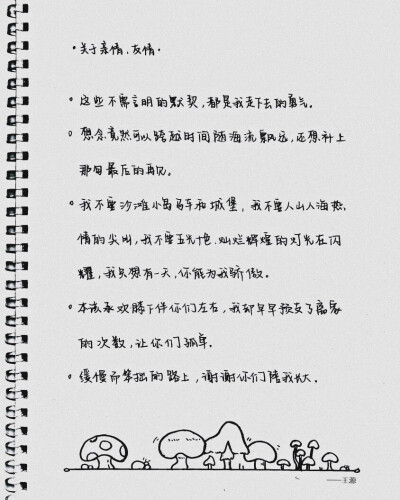 ·关于亲情、友情·
• 这些不需言明的默契，都是我走下去的勇气。
• 想念竟然可以跨越时间随海流飘远，还想补上
那句最后的再见。
• 我不要沙滩小岛马车和城堡，我不要人山人海热
情的尖叫，我不要五光十色、灿烂辉煌的灯光在闪
耀，我只想有一天，你能为我骄傲。
• 本该承欢膝下伴你们左右，我却早早预支了离家
的次数，让你们孤单。
• 缓慢而笨拙的路上，谢谢你们陪我长大。
——王源